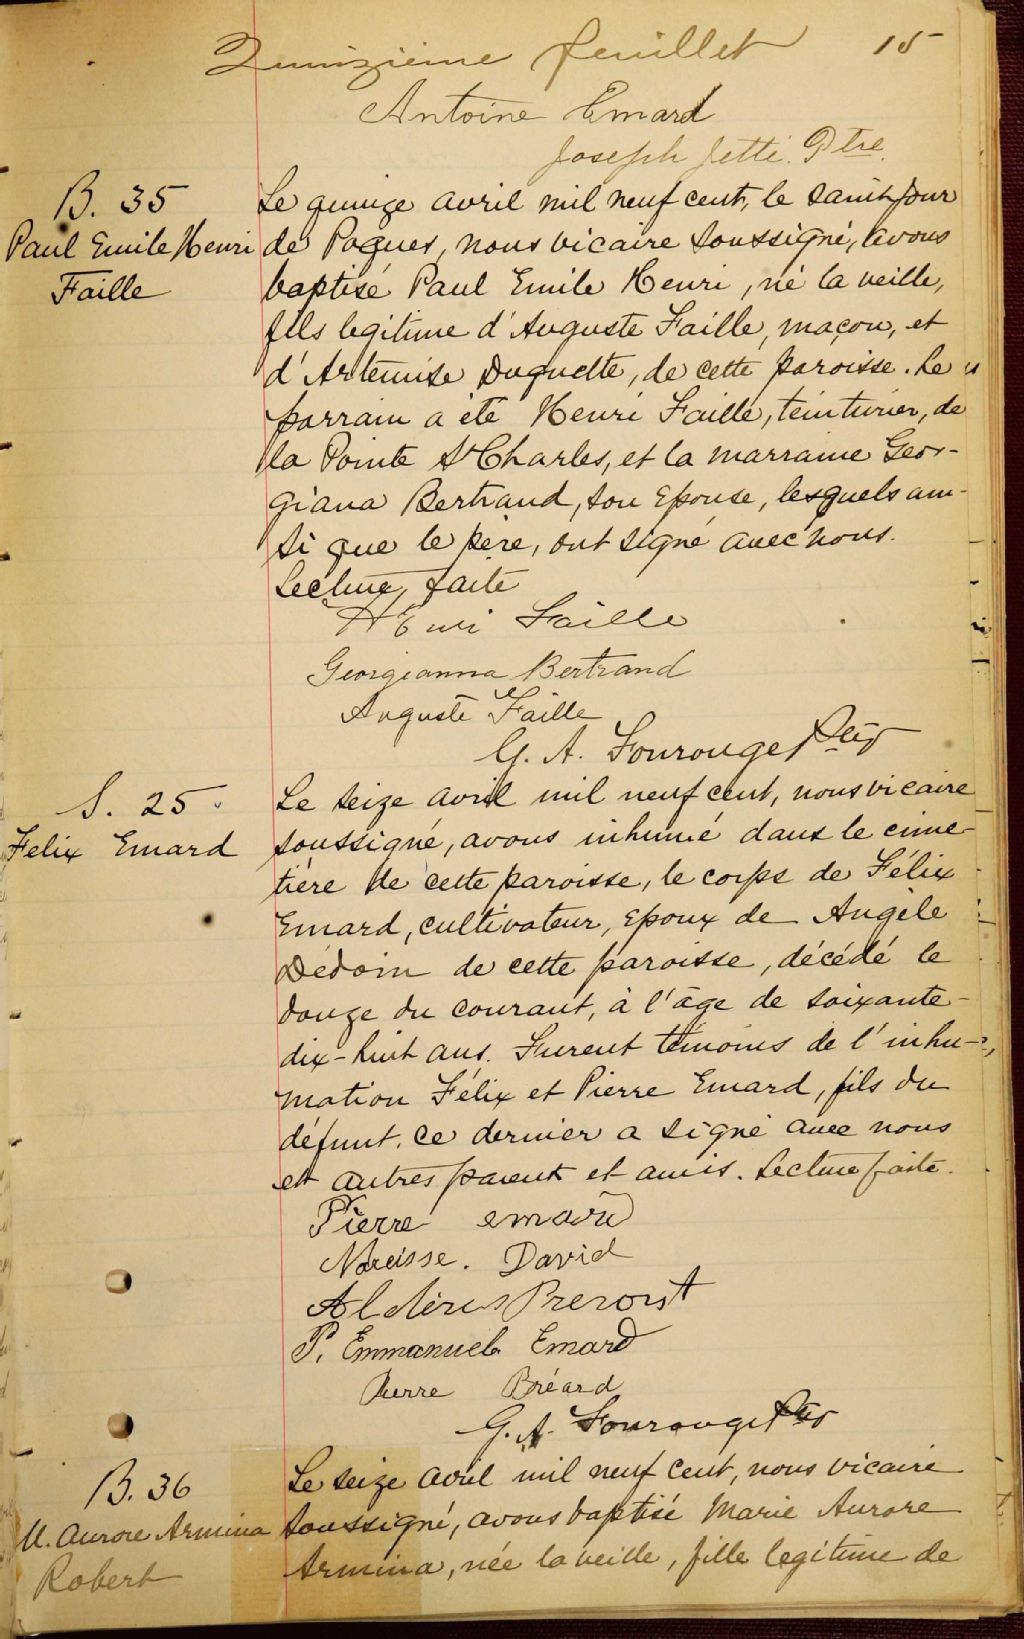 Quinzième feuillet 15
Antoine Emard
Joseph Jetté. Ptre.
B. 35
Paul Emile Henri
Faille
Le quinze avril mil neuf cent, le saint jour
de Paques, nous vicaire soussigné, avons
baptisé Paul Emile Henri, né la veille,
fils legitime d'Auguste Faille, maçon, et
d'Artemise Duquette, de cette paroisse. Le
parrain a été Henri Faille, teinturier, de
la Pointe St Charles, et la marraine Geor-
giana Bertrand, son Epouse, lesquels ain-
si que le père, ont signé avec nous.
Lecture faite
Henri Faille
Georgeanna Bertrand
Auguste Faille
G. A. Fourouge Ptre
S. 25
Felix Emard
Le seize avril mil neuf cent, nous vicaire
soussigné, avons inhumé dans le cime-
tière de cette paroisse, le corps de Félix
Emard, cultivateur, Epoux de Angèle
de cette paroisse, décédé le
douze du courant, à l'âge de soixante-
dix-huit ans. Furent témoins de l'inhu-
mation Félix et Pierre Emard, fils du
défunt. Ce dernier a signé avec nous
et autres parents et amis. Lecture faite.
Pierre emard
Narcisse. David
P. Emmanuel Emard
Pierre Bréard
G. A. Fourouge Ptre
B. 36
M. Aurore Armina
Robert
Le seize avril mil neuf cent, nous vicaire
soussigné, avons baptisé Marie Aurore
Armina, née la veille, fille legitime de